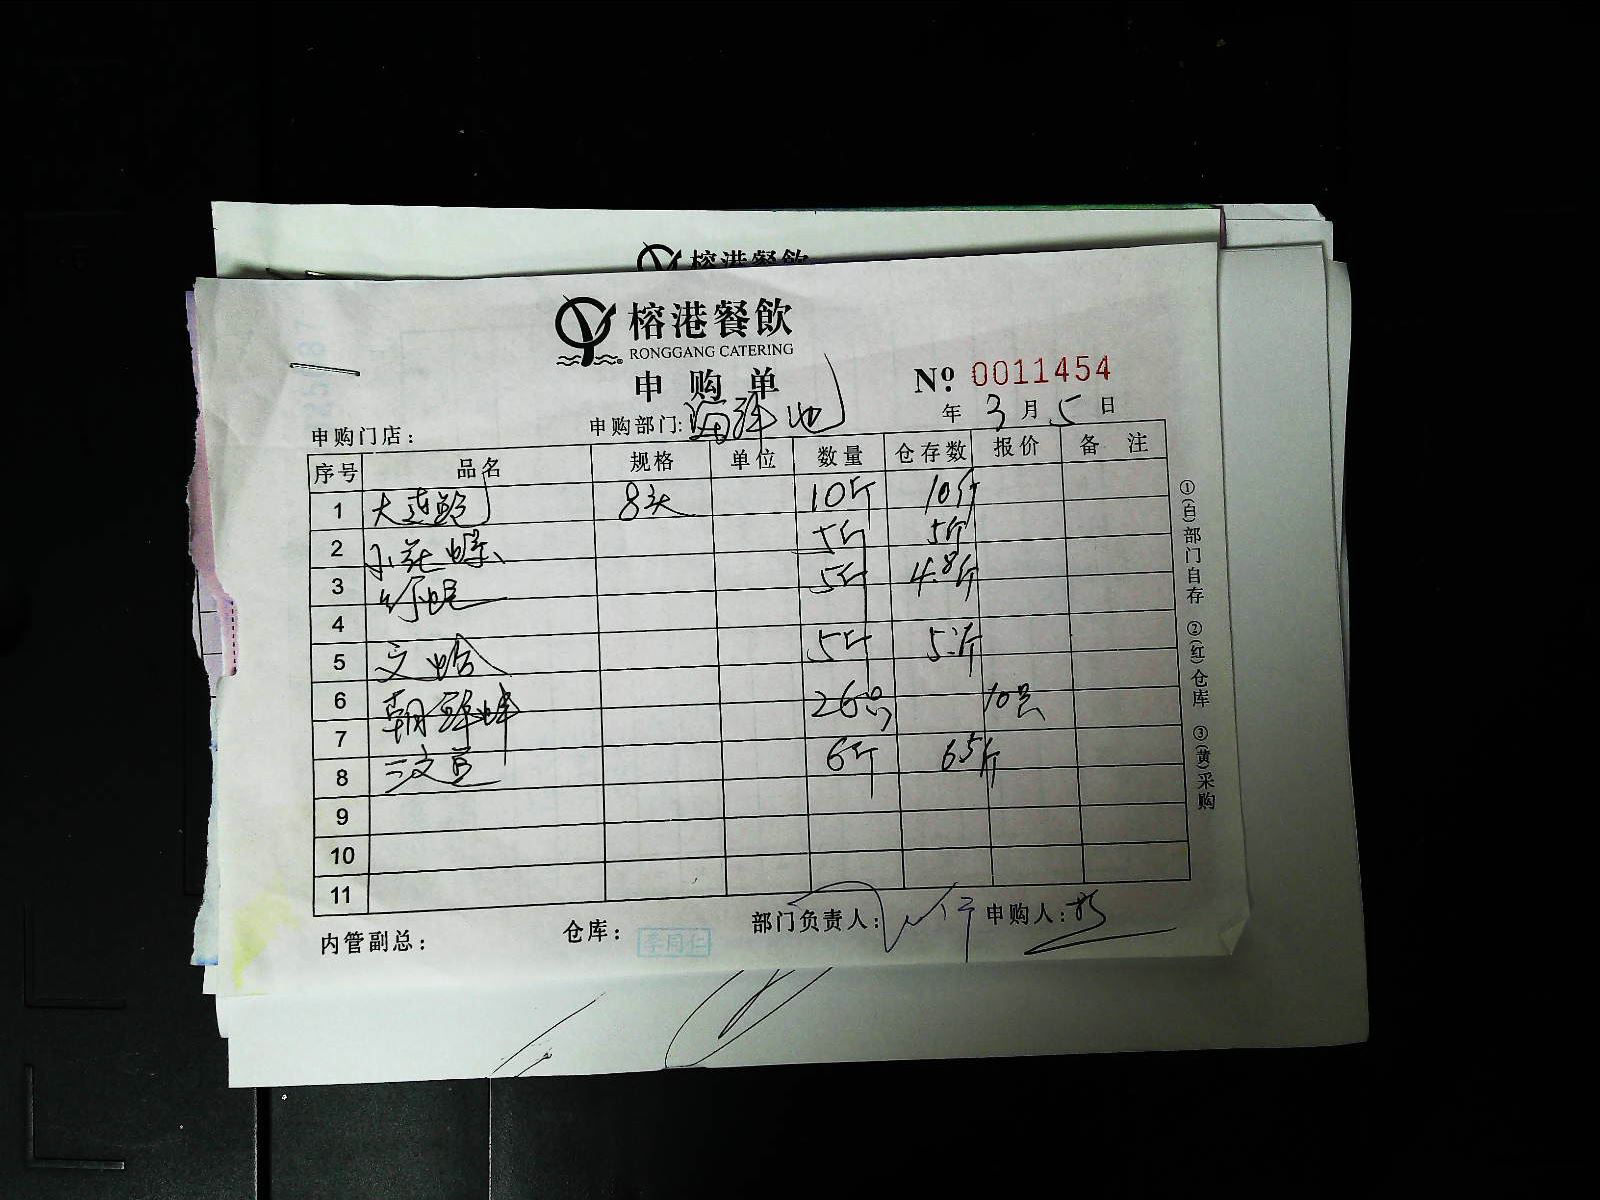 榕港餐飲
榕港餐飲
RONGGANG CATERING
申购单
№ 0011454
年 3 月 5 日
申购门店： 申购部门: 海鲜池
序号 品名 规格 单位 数量 仓存数 报价 备注
1 大连鲍 8头 10斤 10斤
2 小花螺 5斤 5斤
3 竹蛏 5斤 4.8斤
4
5 文蛤 5斤 5斤
6 朝鲜蚌 26只 10只
7
8 三文鱼 6斤 65斤
9
10
11
内管副总： 仓库： 李同仁 部门负责人： 申购人：
①(白)部门自存 ②(红)仓库 ③(黄)采购